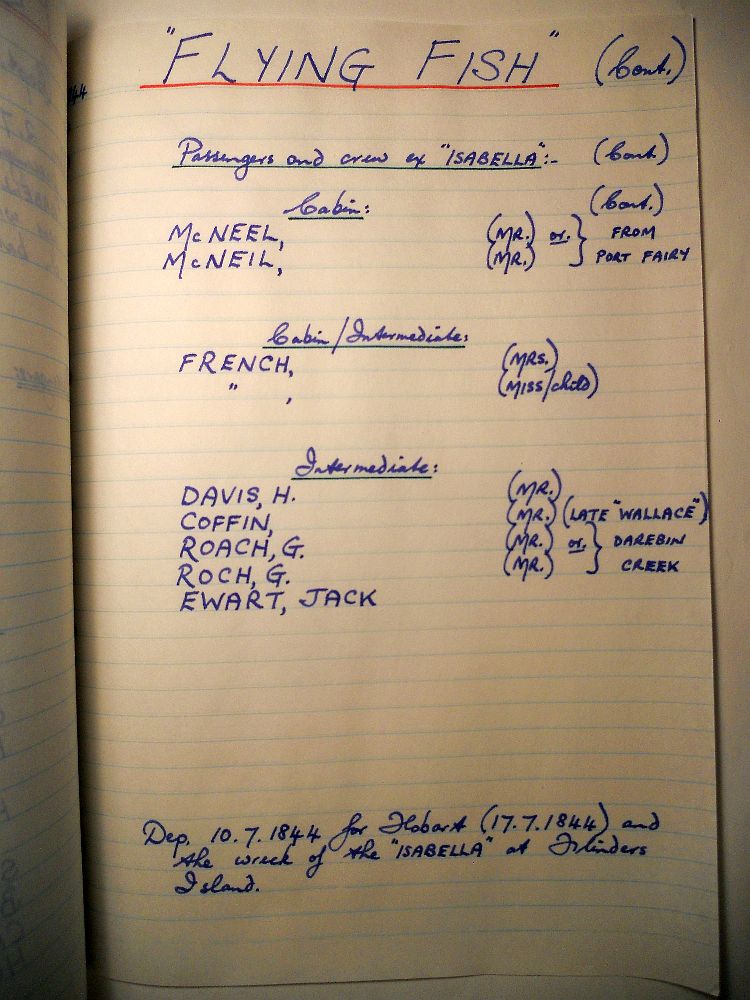 "FLYING FISH" (Cont.)
Passengers and crew ex "ISABELLA":- (Cont)
Cabin: (Cont.)
McNEEL, (MR.) or. } FROM
McNEIL, (MR.) PORT FAIRY
Cabin/Intermediate:
FRENCH, (MRS.)
" , (MISS/child)
Intermediate:
DAVIS, H. (MR.)
COFFIN, (MR.) (LATE "WALLACE")
ROACH, G. (MR.) or. } DAREBIN
ROCH, G. (MR.) CREEK
EWART, JACK
Dep. 10.7.1844 for Hobart (17.7.1844) and
the wreck of the "ISABELLA" at Flinders
Island.